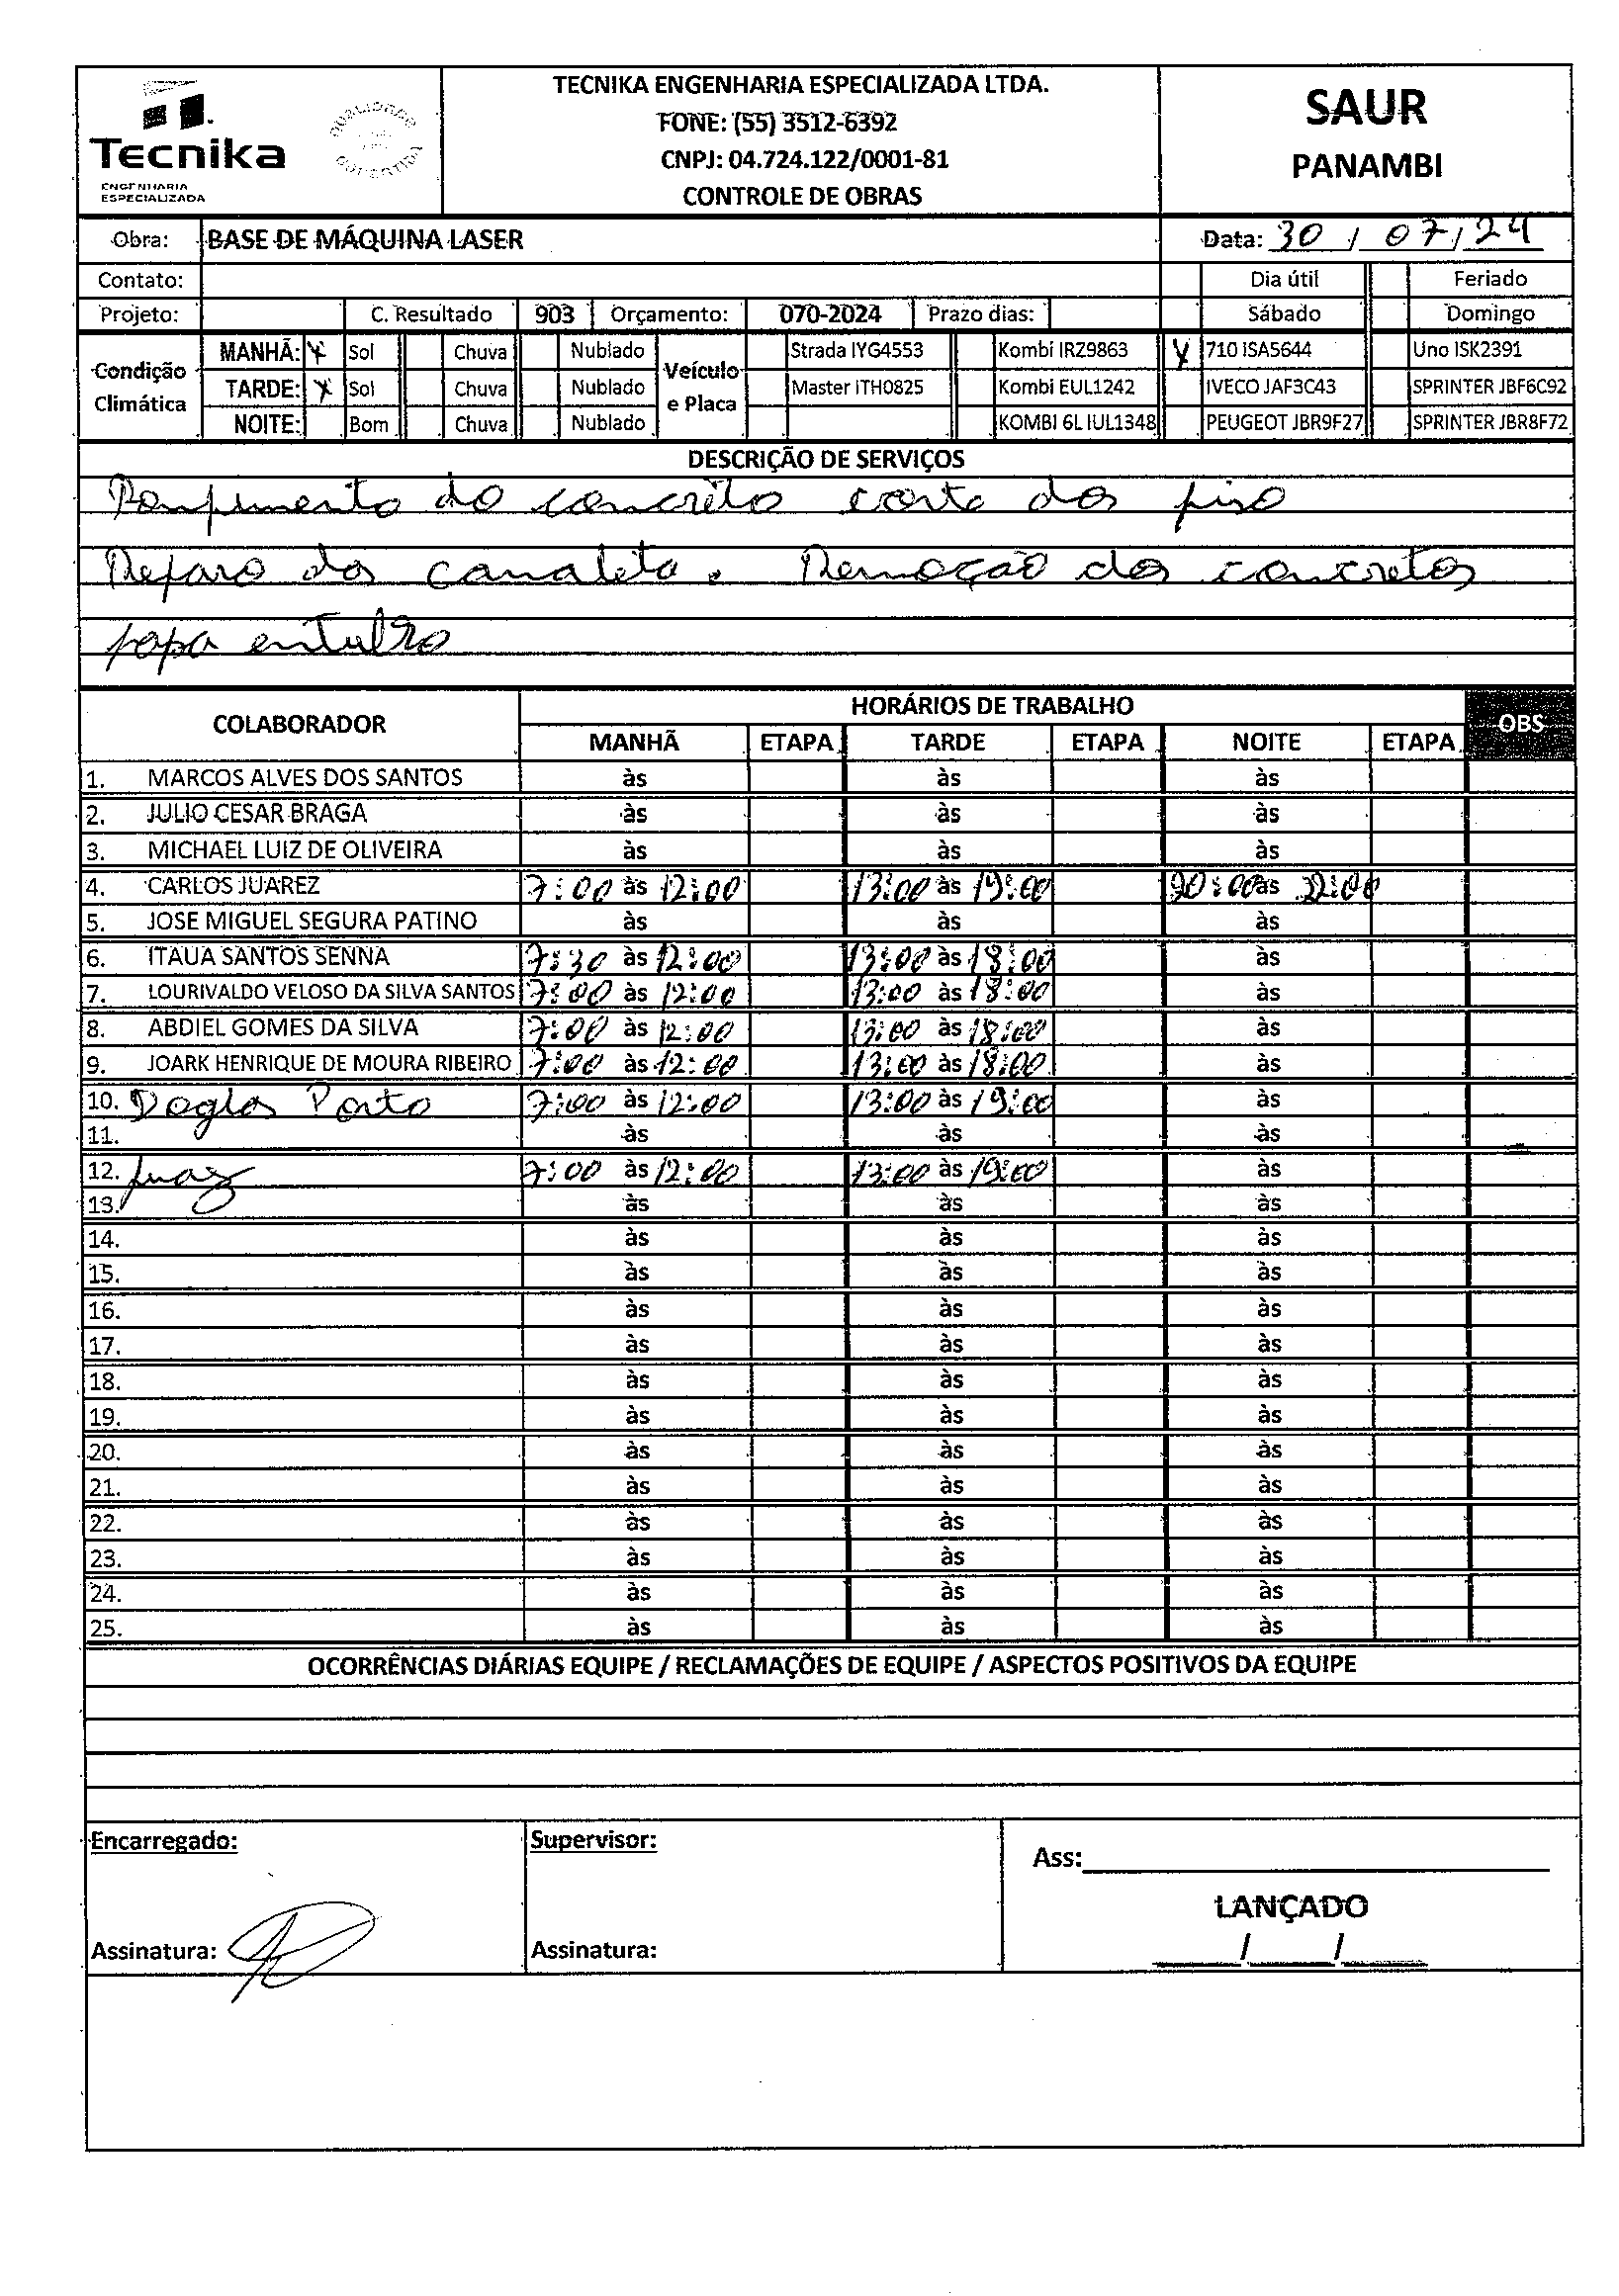 Tecnika
ENGENHARIA
ESPECIALIZADA
TECNIKA ENGENHARIA ESPECIALIZADA LTDA.
FONE: (55) 3512-6392
CNPJ: 04.724.122/0001-81
CONTROLE DE OBRAS
SAUR
PANAMBI
Obra: BASE DE MÁQUINA LASER Data: 30 / 07 / 24
Contato: Dia útil Feriado
Projeto: C. Resultado 903 Orçamento: 070-2024 Prazo dias: Sábado Domingo
Condição Climática
MANHÃ: X Sol Chuva Nublado
TARDE: X Sol Chuva Nublado
NOITE: Bom Chuva Nublado
Veículo e Placa
Strada IYG4553 Kombi IRZ9863 X 710 ISA5644 Uno ISK2391
Master ITH0825 Kombi EUL1242 IVECO JAF3C43 SPRINTER JBF6C92
KOMBI 6L IUL1348 PEUGEOT JBR9F27 SPRINTER JBR8F72
DESCRIÇÃO DE SERVIÇOS
Rompimento do concreto corte dos piso
Reparo das canaleta. Remoção dos concretos
papa entulho
COLABORADOR HORÁRIOS DE TRABALHO OBS
MANHÃ ETAPA TARDE ETAPA NOITE ETAPA
1. MARCOS ALVES DOS SANTOS às às às
2. JULIO CESAR BRAGA às às às
3. MICHAEL LUIZ DE OLIVEIRA às às às
4. CARLOS JUAREZ 7:00 às 12:00 13:00 às 19:00 20:00 às 22:00
5. JOSE MIGUEL SEGURA PATINO às às às
6. ITAUA SANTOS SENNA 7:30 às 12:00 13:00 às 18:00 às
7. LOURIVALDO VELOSO DA SILVA SANTOS 7:00 às 12:00 13:00 às 18:00 às
8. ABDIEL GOMES DA SILVA 7:00 às 12:00 13:00 às 18:00 às
9. JOARK HENRIQUE DE MOURA RIBEIRO 7:00 às 12:00 13:00 às 18:00 às
10. Doglas Porto 7:00 às 12:00 13:00 às 19:00 às
11. às às às
12. 7:00 às 12:00 13:00 às 19:00 às
13. às às às
14. às às às
15. às às às
16. às às às
17. às às às
18. às às às
19. às às às
20. às às às
21. às às às
22. às às às
23. às às às
24. às às às
25. às às às
OCORRÊNCIAS DIÁRIAS EQUIPE / RECLAMAÇÕES DE EQUIPE / ASPECTOS POSITIVOS DA EQUIPE
Encarregado: Supervisor: Ass:
LANÇADO
Assinatura: Assinatura: / /